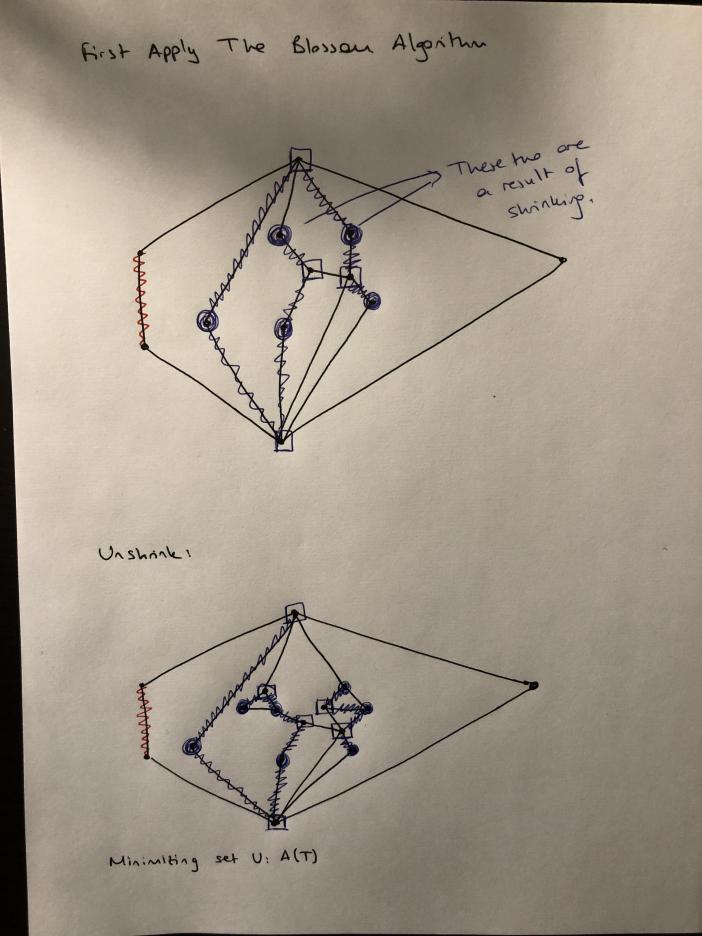 First Apply The Blossom Algorithm
These two are
a result of
shrinking.
Unshrink:
Minimizing set U: A(T)